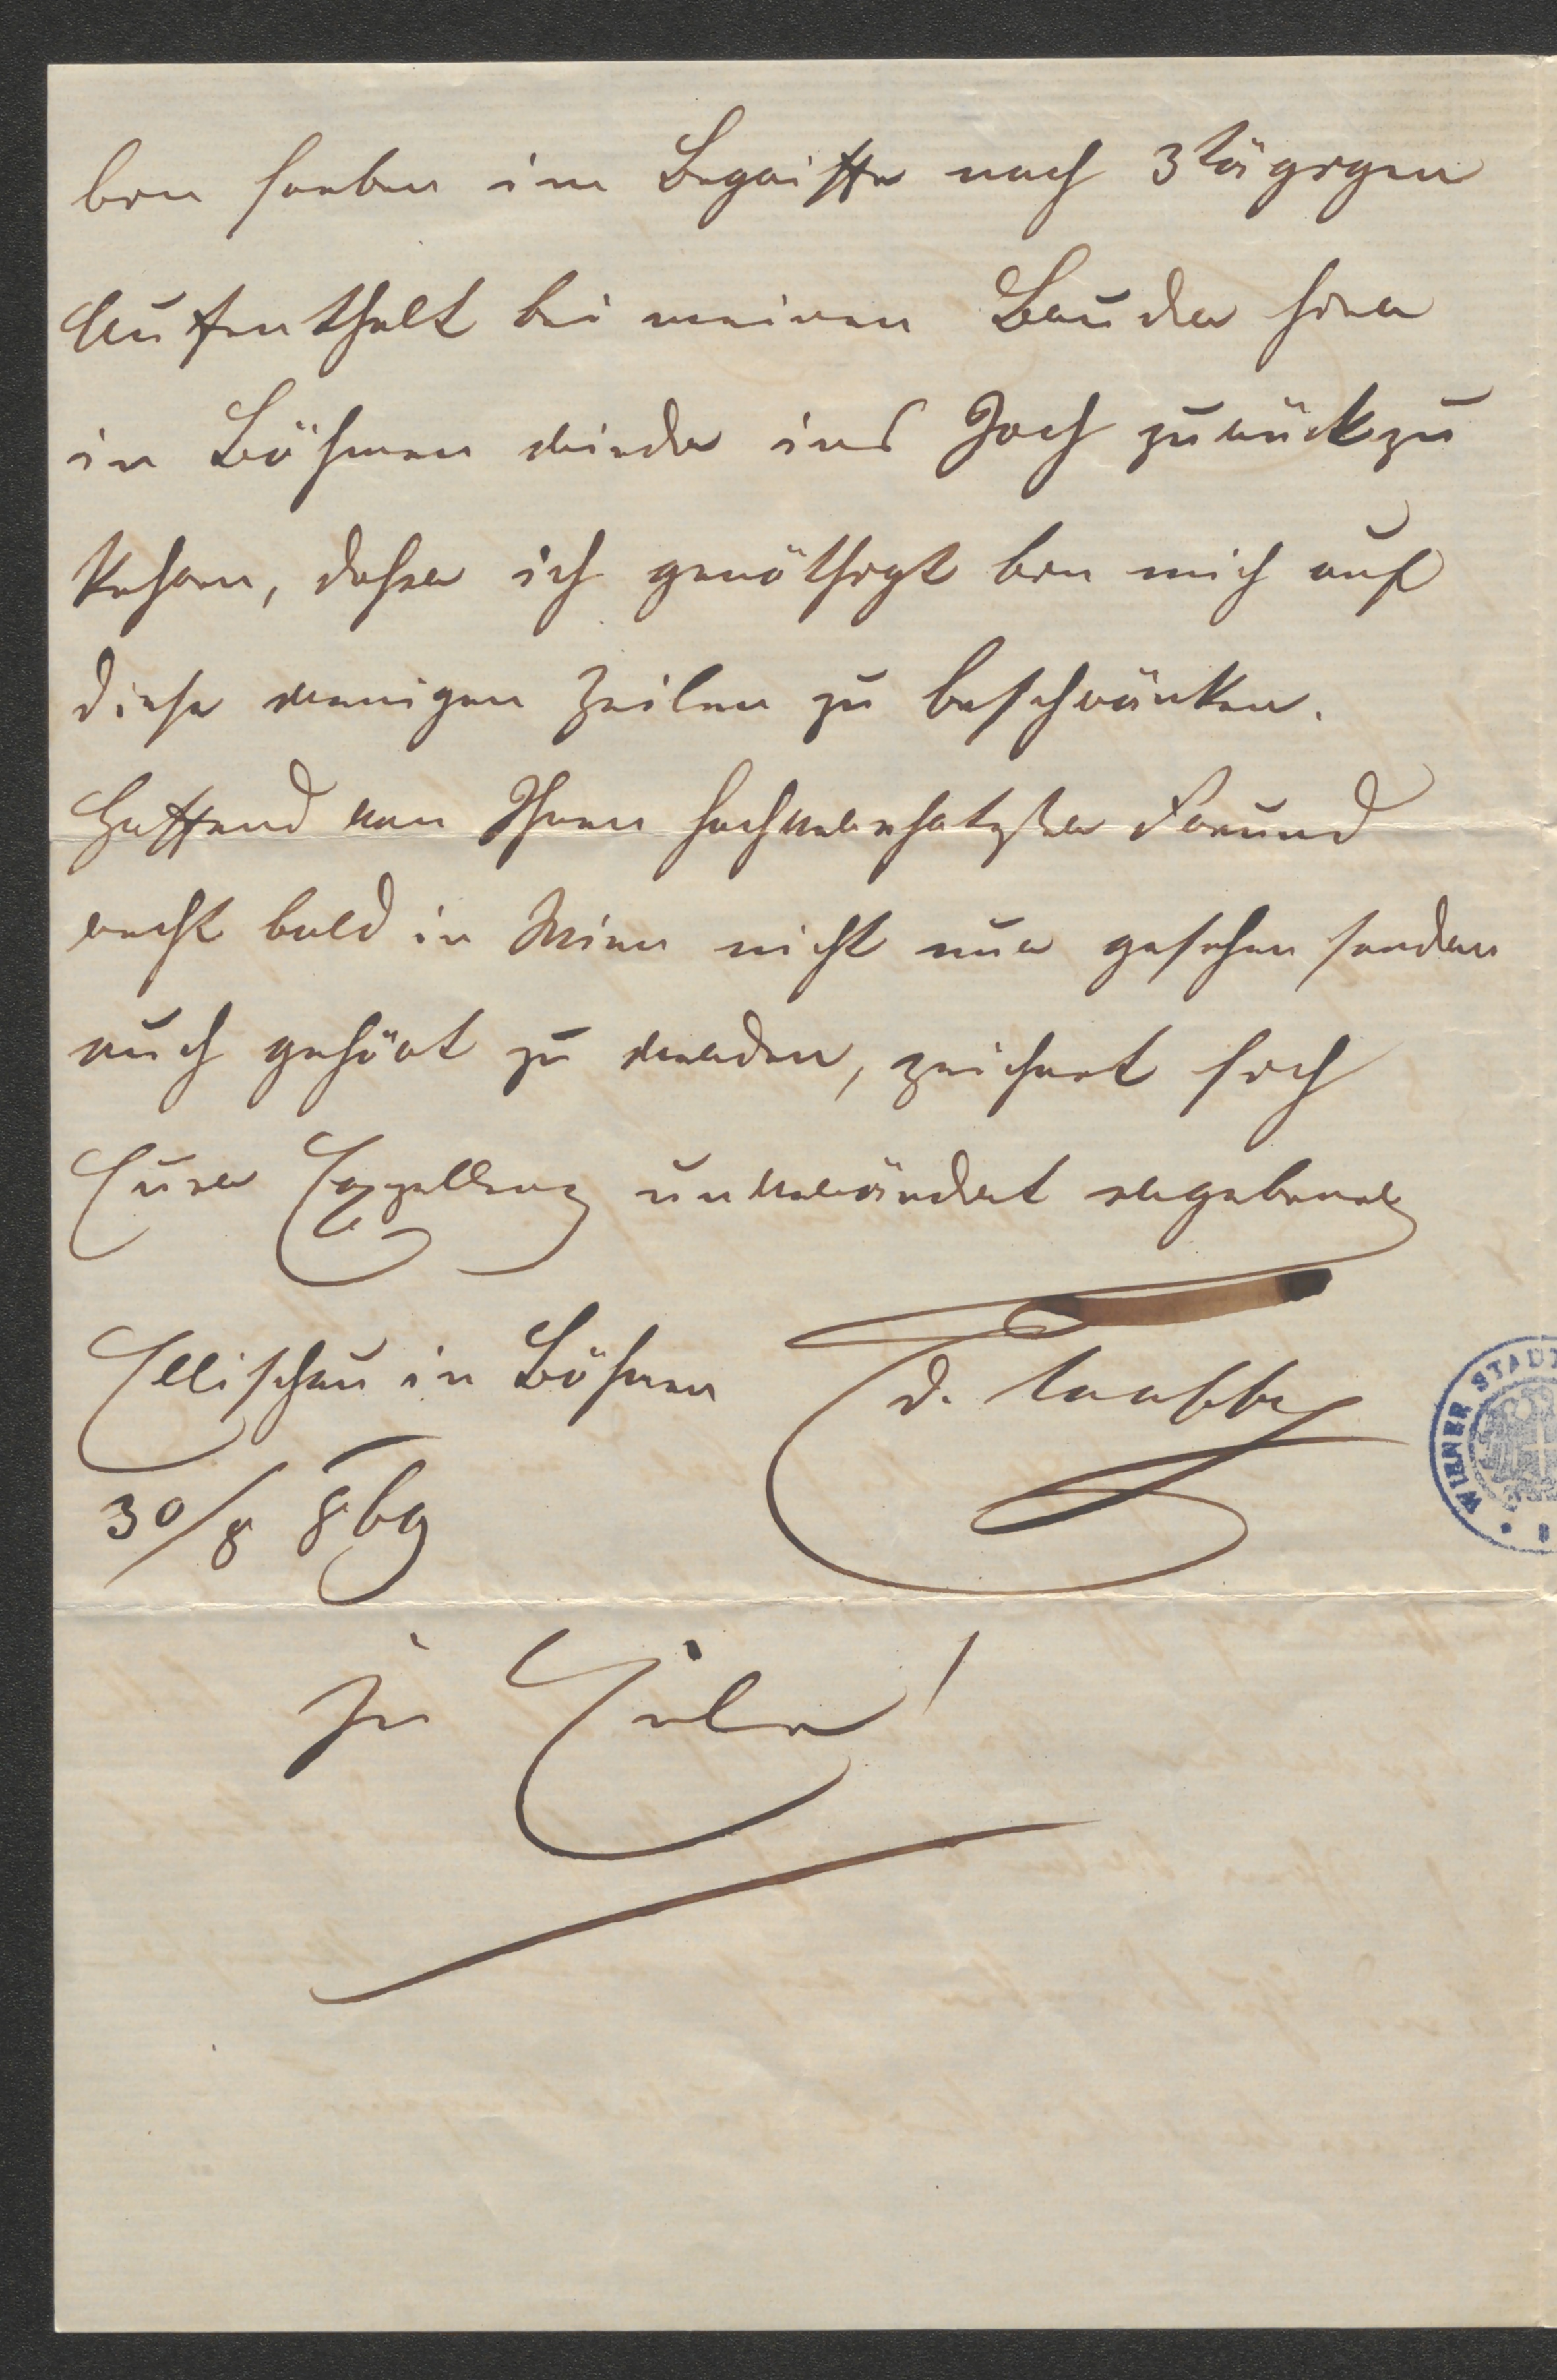 bin soeben im Begriffe nach 3tägigen
Aufenthalt bei meinen Bruder hier
in Böhmen wieder ins Joch zurückzu
kehren, daher ich genöthigt bin mich auf
diese wenigen Zeilen zu beschränken.
Hoffend von Ihnen hochverehrtester Freund
recht bald in Wien nicht nur gesehen sondern
auch gehört zu werden, zeichnet sich
Eurer Exzellenz unverändert ergebenes
Ellischau in Böhmen
Taaffe
30/8 869
In Eile!
WIENER STADT